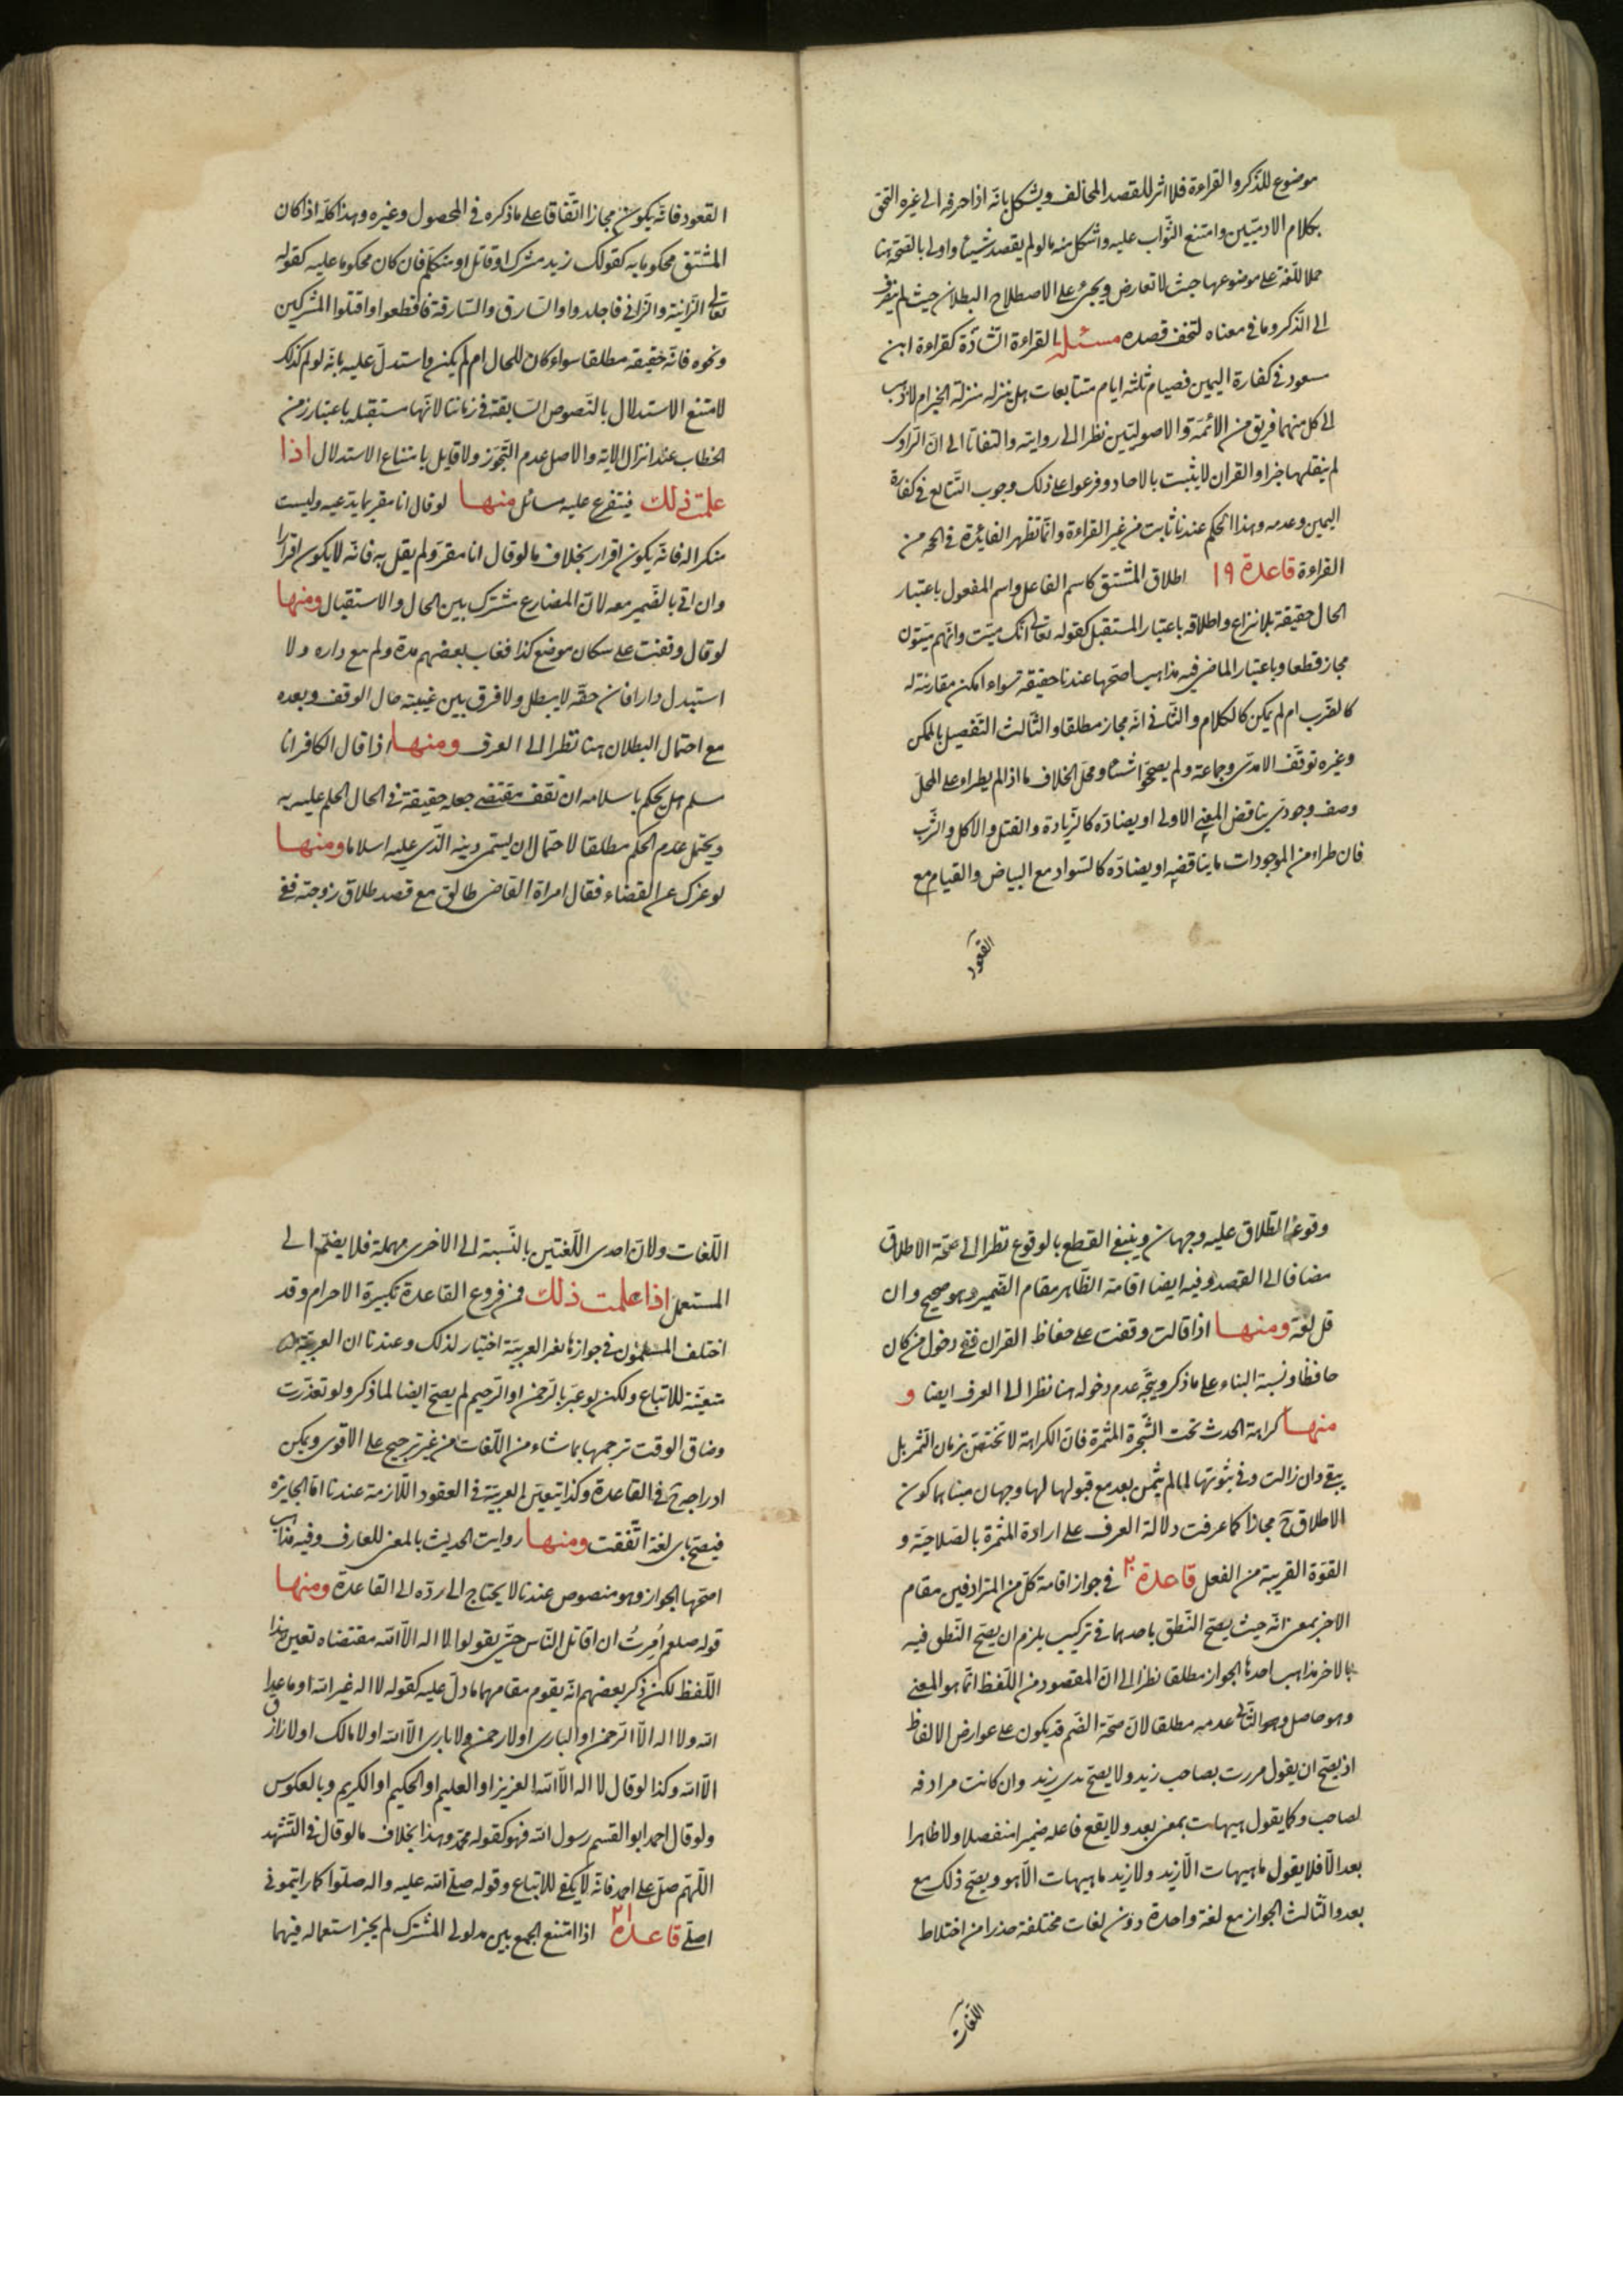 موضوع للذكر والقراءة فلا اثر للقصد المخالف ويشكل بانه اذا حرفه الى غيره التحق
بكلام الادميين وامتنع الثواب عليه واشكل منه ما لو لم يقصد شيئا واولى بالصحة هنا
حملا للغة على موضوعها حيث لا تعارض ويجئ على الاصطلاح البطلان حيث لم
الى الذكر وما في معناه قصده مسئلة القراءة الشاذة كقراءة ابن
مسعود في كفارة اليمين فصيام ثلثة ايام متتابعات هل ينزله منزلة الخبر ام لا ذهب
الى كل منهما فريق من الائمة والاصوليين نظرا الى روايته والتفاتا الى ان الراوى
لم ينقلها خبرا والقران لا يثبت بالاحاد وفرعوا على ذلك وجوب التتابع في كفارة
اليمين وعدمه وهذا الحكم عندنا ثابت من غير القراءة وانما تظهر الفايدة في الحجة من
القراءة قاعدة ١٩ اطلاق المشتق كاسم الفاعل واسم المفعول باعتبار
الحال حقيقة بلا نزاع واطلاقه باعتبار المستقبل كقوله تعالى انك ميت وانهم ميتون
مجاز قطعا وباعتبار الماضى فيه مذاهب اصحها عندنا حقيقة سواء امكن مقارنته له
كالضرب ام لم يمكن كالكلام والثاني انه مجاز مطلقا والثالث التفصيل بالممكن
وغيره توقف الامدى وجماعة ولم يصححوا شيئا ومحل الخلاف ما اذا لم يطراء على المحل
وصف وجودى يناقض المعنى الاولى او يضاده كالزيادة والقتل والاكل والشرب
فان طراء من الموجودات ما يناقضه او يضاده كالسواد مع البياض والقيام مع
القعود
القعود فانه يكون مجازا اتفاقا على ما ذكره في المحصول وغيره وهذا كله اذا كان
المشتق محكوما به كقولك زيد مشرك او قاتل او متكلم فان كان محكوما عليه كقوله
تعالى الزانية والزانى فاجلدوا والسارق والسارقة فاقطعوا واقتلوا المشركين
ونحوه فانه حقيقة مطلقا سواء كان للحال ام لم يكن واستدل عليه بانه لو لم كذلك
لامتنع الاستدلال بالنصوص السابقة في زماننا لانها مستقبلة باعتبار زمن
الخطاب عند انزال الاية والاصل عدم التجوز ولا قايل بامتناع الاستدلال اذا
علمت ذلك فيتفرع عليه مسائل منها لو قال انا مقر بما يدعيه وليست
منكرا له فانه يكون اقرار بخلاف ما لو قال انا مقر ولم يقل به فانه لا يكون اقرارا
وان اتى بالضمير معه لان المضارع مشترك بين الحال والاستقبال ومنها
لو قال وقفت على سكان موضع كذا فغاب بعضهم مدة ولم مع داره ولا
استبدل دارا فان حقه لا يبطل ولا فرق بين غيبته حال الوقف وبعده
مع احتمال البطلان هنا نظرا الى العرف ومنها اذا قال الكافر انا
مسلم هل يحكم باسلامه ان نقف مقتضى جعله حقيقة في الحال الحكم عليه به
ويحتمل عدم الحكم مطلقا لاحتمال ان يسمى دينه الذى عليه اسلاما ومنها
لو عزل عن القضاء فقال امراة القاضى طالق مع قصد طلاق زوجته ففى
وقوع الطلاق عليه وجهان وينبغى القطع بالوقوع نظرا الى صحة الاطلاق
مضافا الى القصد وفيه ايضا اقامة الظاهر مقام الضمير وهو صحيح وان
قل لغة ومنها اذا قالت وقفت على حفاظ القران ففى دخول من كان
حافظا ونسيه البناء على ما ذكر ويتجه عدم دخوله هنا نظرا الى العرف ايضا و
منها كراهة الحدث تحت الشجرة المثمرة فان الكراهة لا تختص بزمان الثمر بل
يبقى وان زالت وفى ثبوتها لما لم يثمر بعد مع قبولها لها وجهان مبناهما كون
الاطلاق ح مجازا كما عرفت ودلالة العرف على ارادة المثمرة بالصلاحية و
القوة القريبة من الفعل قاعدة ٢٠ في جواز اقامة كل من المترادفين مقام
الاخر بمعنى انه حيث يصح النطق باحدهما في تركيب يلزم ان يصح النطق فيه
بالاخر مذاهب احدها الجواز مطلقا نظرا الى ان المقصود من اللفظ انما هو المعنى
وهو حاصل وهو الثانى عدمه مطلقا لان صحة الضم قد يكون على عوارض الالفاظ
اذ يصح ان يقول مررت بصاحب زيد ولا يصح بذى زيد وان كانت مرادفه
لصاحب وكما يقول هيهات بمعنى بعد ولا يقع فاعله ضميرا منفصلا ولا ظاهرا
بعد الا فلا يقول ما هيهات الا زيد ولا زيد ما هيهات الا هو ويصح ذلك مع
بعد والثالث الجواز مع لغة واحدة دون لغات مختلفة حذرا من اختلاط
اللغات
اللغات ولان احدى اللغتين بالنسبة الى الاخرى مهملة فلا يضم الى
المستعمل اذا علمت ذلك فمن فروع القاعدة تكبيرة الاحرام وقد
اختلف المسلمون في جوازها بغير العربية اختيار لذلك وعندنا ان العربية
متعينة للاتباع ولكن لو عبر بالرحمن او الرحيم لم يصح ايضا لما ذكر ولو تعذرت
وضاق الوقت ترجمها بما شاء من اللغات من غير ترجيح على الاقوى ويمكن
ادراجه ح في القاعدة وكذا يتعين العربية في العقود اللازمة عندنا اما الجايزة
فيصح باى لغة اتفقت ومنها روايت الحديث بالمعنى للعارف وفيه مذاهب
اصحها الجواز وهو منصوص عندنا لا يحتاج الى رده الى القاعدة ومنها
قوله صلعم امرت ان اقاتل الناس حتى يقولوا لا اله الا الله مقتضاه تعين هذا
اللفظ لكن ذكر بعضهم انه يقوم مقامهما ما دل عليه كقوله لا اله غير الله او ما عدا
الله ولا اله الا الرحمن او البارى او لا رحمن ولا بارى الا الله او لا مالك او لا رازق
الا الله وكذا لو قال لا اله الا الله العزيز او العليم او الحكيم او الكريم وبالعكوس
ولو قال احمد ابو القسم رسول الله فهو كقوله محمد وهذا بخلاف ما لو قال في التشهد
اللهم صل على احمد فانه لا يكفى للاتباع وقوله صلى الله عليه واله صلوا كما رايتمونى
اصلى قاعدة ٢١ اذا امتنع الجمع بين مدلولى المشترك لم يجز استعماله فيهما